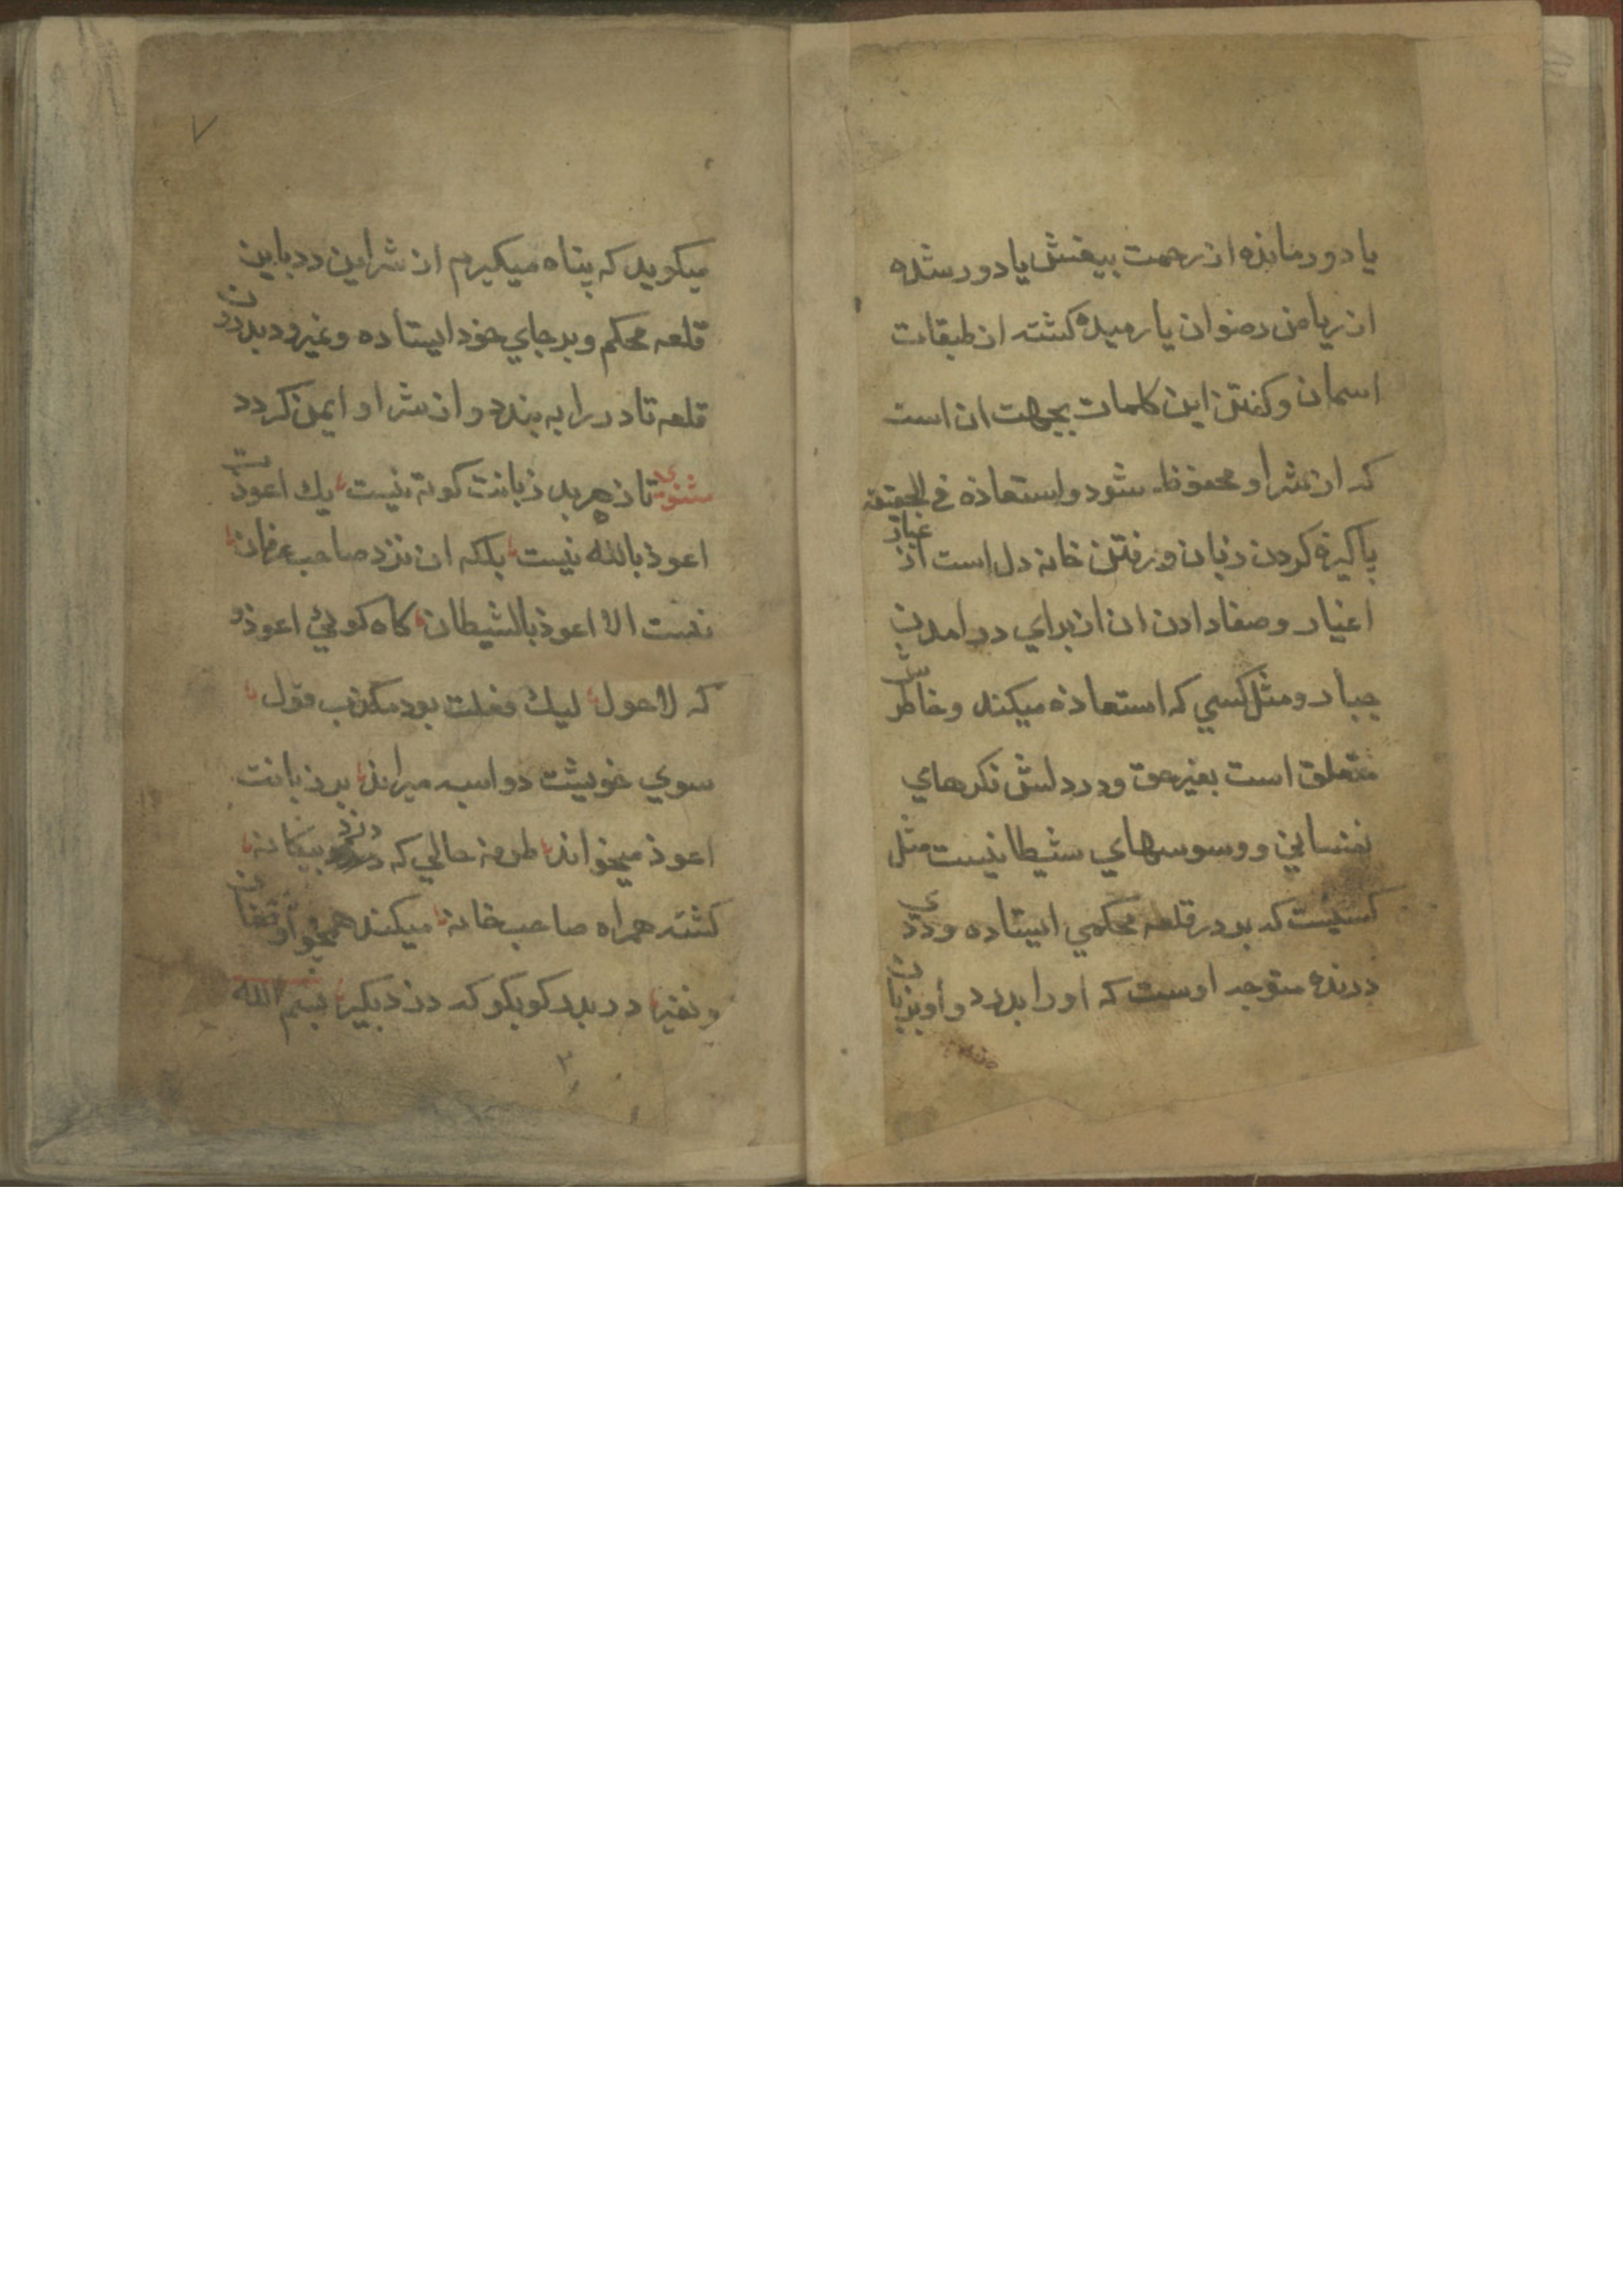 یا دور مانده از رحمت بیغش یا دور شده
از ریاض رضوان یا رمیده کشته از طبقات
اسمان و کفتن این کلمات بجهت ان است
که از شر او محفوظ شود و استعاذه فی الحقیقه
پاکیزه کردن زبان و رفتن خانه دل است از غبار
اغیار و صفا دادن ان از برای در امدن
جبار و مثل کسی که استعاذه میکند و خاطرش
متعلق است بغیر حق و در دلش فکرهای
نفسانی و وسوسهای شیطانیست مثل
کسیست که بر در قلعه محکمی ایستاده و ددی
درنده متوجه اوست که او را بدرد و او بزبان
میکوید که پناه میکیرم از شر این دد باین
قلعه محکم و بر جای خود ایستاده و نمیرود بدرون
قلعه تا در را به بندد و از شر او ایمن کردد
مثنوی تا ز هر بد زبانت کوته نیست یک اعوذت
اعوذ بالله نیست بلکه ان نزد صاحب عرفان
نیست الا اعوذ بالشیطان کاه کوئی اعوذ و
که لاحول لیک فعلت بود مکذب قول
سوی خویشت دو اسبه میراند بر زبانت
اعوذ میخواند طرفه حالی که دزد بیکانه
کشته همراه صاحب خانه میکند همچو او فغان
و نفیر در بدر کو بکو که دزد بکیر بسم الله